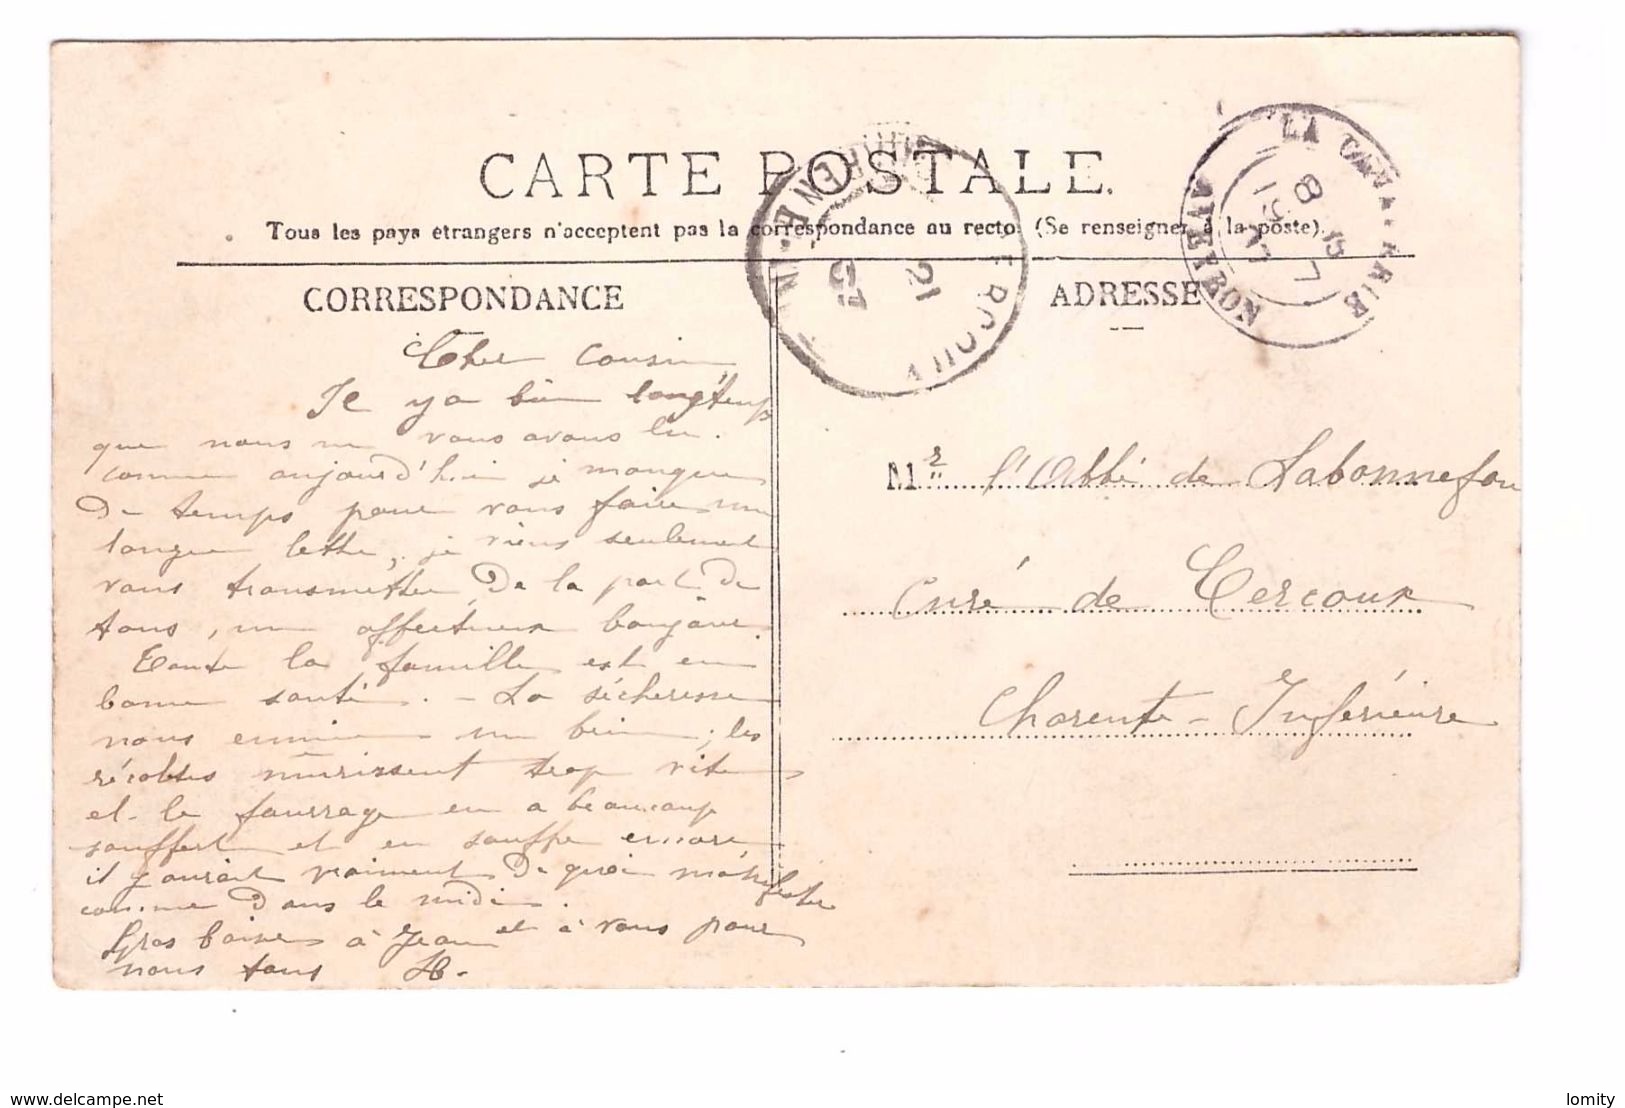 CARTE POSTALE.
Tous les pays étrangers n'acceptent pas la correspondance au recto. (Se renseigner à la poste).
CORRESPONDANCE
ADRESSE
LA CAVALERIE
AVEYRON
8 15
19 7
07
CERCOUX
CHARENTE-INFRE
21
07
Cher Cousin,
Il y a bien longtemps
que nous ne vous avons lu.
comme aujourd'hui je manque
de temps pour vous faire une
longue lettre, je viens seulement
vous transmettre de la part de
tous, un affectueux bonjour.
Toute la famille est en
bonne santé. - La sécheresse
nous ennuie un brin ; les
récoltes mûrissent trop vite
et le fourrage en a beaucoup
souffert et en souffre encore
il y aurait vraiment de quoi manifester
comme dans le midi.
Gros baisers à Jean et à vous pour
nous tous H.
Mr l'Abbé de Labonnefon
Curé de Cercoux
Charente-Inférieure
www.delcampe.net
lomity